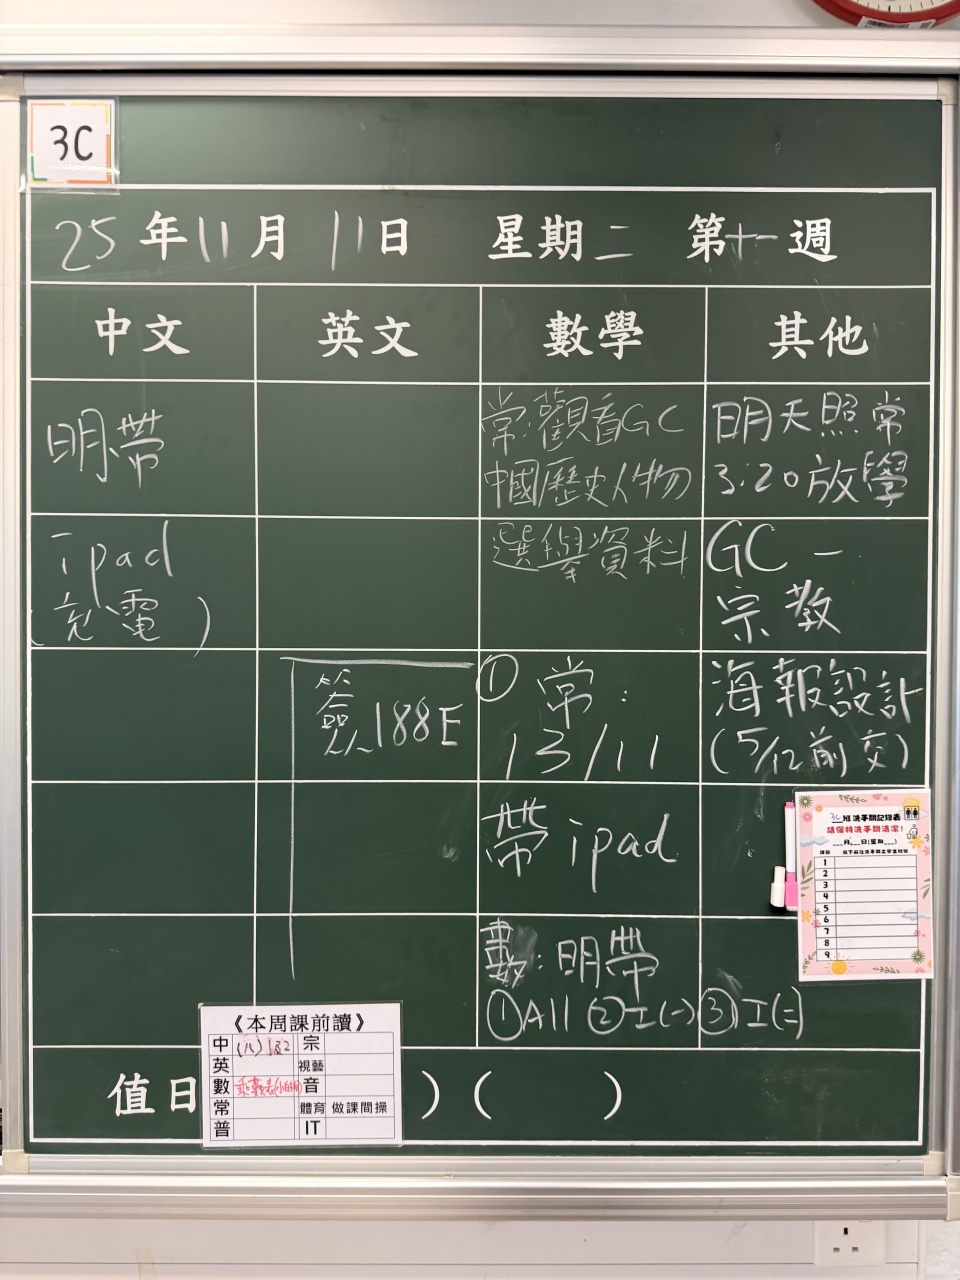 3C
25年11月11日 星期二 第十一週
中文 英文 數學 其他
明帶
ipad
(充電)
簽188E
常:觀看GC
中國歷史人物
選舉資料
① 常:
13/11
帶ipad
數:明帶
①All ②工(一) ③工(二)
明天照常
3:20放學
GC -
宗教
海報設計
(5/12前交)
3C班洗手間記錄表
請保持洗手間清潔!
___月___日(星期___)
1
2
3
4
5
6
7
8
9
《本周課前讀》
中 (八)1&2 宗
英 視藝
數 音
常 體育 做課間操
普 IT
值日 )( )